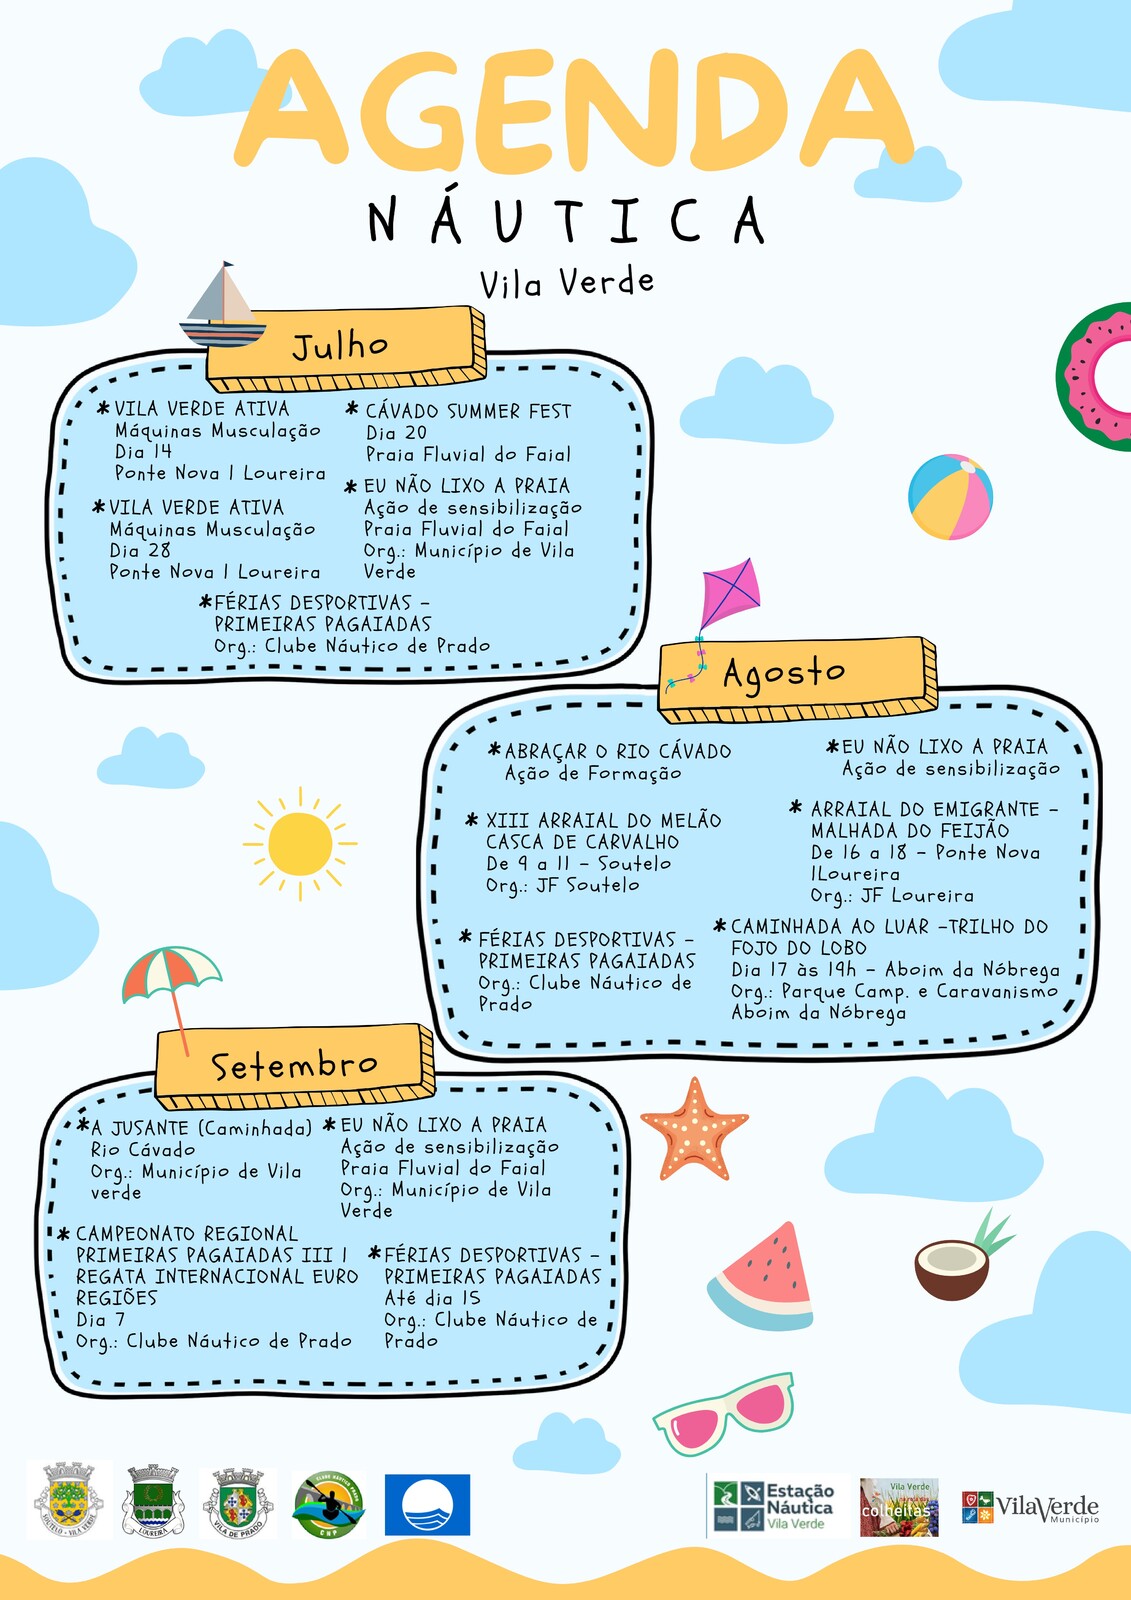 AGENDA
NÁUTICA
Vila Verde
Julho
*VILA VERDE ATIVA
Máquinas Musculação
Dia 14
Ponte Nova | Loureira
*VILA VERDE ATIVA
Máquinas Musculação
Dia 28
Ponte Nova | Loureira
* CÁVADO SUMMER FEST
Dia 20
Praia Fluvial do Faial
* EU NÃO LIXO A PRAIA
Ação de sensibilização
Praia Fluvial do Faial
Org.: Município de Vila
Verde
*FÉRIAS DESPORTIVAS -
PRIMEIRAS PAGAIADAS
Org.: Clube Náutico de Prado
Agosto
*ABRAÇAR O RIO CÁVADO
Ação de Formação
* XIII ARRAIAL DO MELÃO
CASCA DE CARVALHO
De 9 a 11 - Soutelo
Org.: JF Soutelo
* FÉRIAS DESPORTIVAS -
PRIMEIRAS PAGAIADAS
Org.: Clube Náutico de
Prado
*EU NÃO LIXO A PRAIA
Ação de sensibilização
* ARRAIAL DO EMIGRANTE -
MALHADA DO FEIJÃO
De 16 a 18 - Ponte Nova
|Loureira
Org.: JF Loureira
*CAMINHADA AO LUAR -TRILHO DO
FOJO DO LOBO
Dia 17 às 19h - Aboim da Nóbrega
Org.: Parque Camp. e Caravanismo
Aboim da Nóbrega
Setembro
*A JUSANTE (Caminhada)
Rio Cávado
Org.: Município de Vila
verde
* CAMPEONATO REGIONAL
PRIMEIRAS PAGAIADAS III |
REGATA INTERNACIONAL EURO
REGIÕES
Dia 7
Org.: Clube Náutico de Prado
*EU NÃO LIXO A PRAIA
Ação de sensibilização
Praia Fluvial do Faial
Org.: Município de Vila
Verde
*FÉRIAS DESPORTIVAS -
PRIMEIRAS PAGAIADAS
Até dia 15
Org.: Clube Náutico de
Prado
SOUTELO - VILA VERDE
LOUREIRA
VILA DE PRADO
CLUBE NÁUTICO PRADO
CNP
Estação
Náutica
Vila Verde
Vila Verde
colheitas
VilaVerde
Município